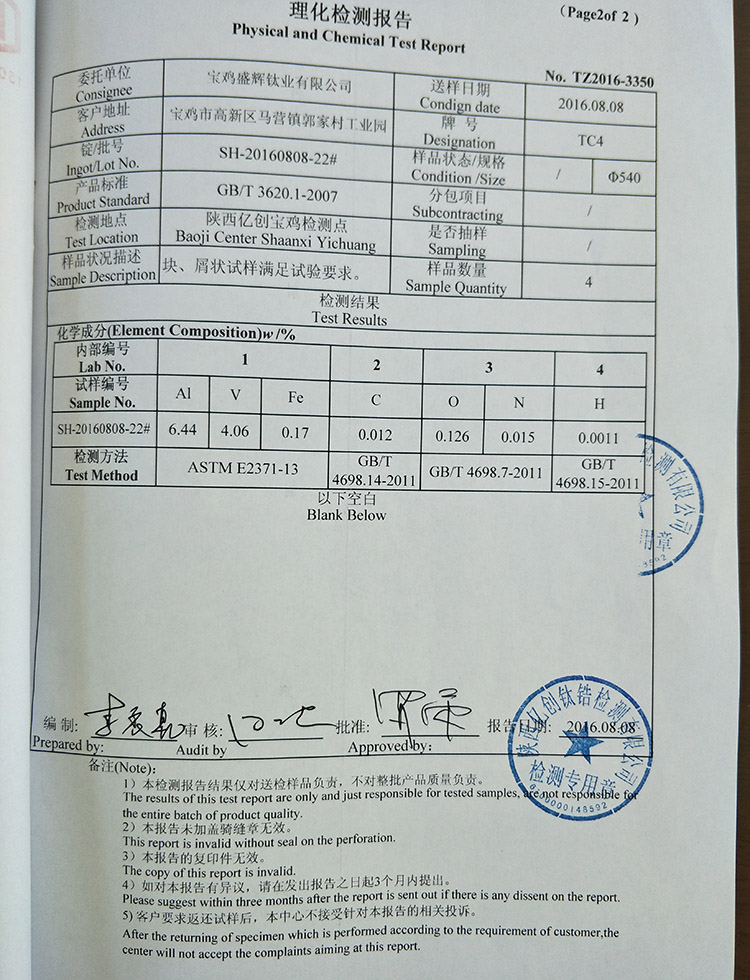 理化检测报告
（Page2of 2 )
Physical and Chemical Test Report
No. TZ2016-3350
委托单位
Consignee
宝鸡盛辉钛业有限公司
送样日期
Condign date
2016.08.08
客户地址
Address
宝鸡市高新区马营镇郭家村工业园
牌 号
Designation
TC4
锭/批号
Ingot/Lot No.
SH-20160808-22#
样品状态/规格
Condition /Size
/
Φ540
产品标准
Product Standard
GB/T 3620.1-2007
分包项目
Subcontracting
/
检测地点
Test Location
陕西亿创宝鸡检测点
Baoji Center Shaanxi Yichuang
是否抽样
Sampling
/
样品状况描述
Sample Description
块、屑状试样满足试验要求。
样品数量
Sample Quantity
4
检测结果
Test Results
化学成分(Element Composition)w /%
内部编号
Lab No.
1
2
3
4
试样编号
Sample No.
Al
V
Fe
C
O
N
H
SH-20160808-22#
6.44
4.06
0.17
0.012
0.126
0.015
0.0011
检测方法
Test Method
ASTM E2371-13
GB/T
4698.14-2011
GB/T 4698.7-2011
GB/T
4698.15-2011
以下空白
Blank Below
检测有限公司
用章
编 制:
Prepared by:
审 核:
Audit by
批准:
Approved by:
报告日期: 2016.08.08
陕西亿创钛锆检测有限公司
检测专用章
备注(Note):
1）本检测报告结果仅对送检样品负责，不对整批产品质量负责。
The results of this test report are only and just responsible for tested samples, are not responsible for
the entire batch of product quality.
2）本报告未加盖骑缝章无效。
This report is invalid without seal on the perforation.
3）本报告的复印件无效。
The copy of this report is invalid.
4）如对本报告有异议，请在发出报告之日起3个月内提出。
Please suggest within three months after the report is sent out if there is any dissent on the report.
5) 客户要求返还试样后，本中心不接受针对本报告的相关投诉。
After the returning of specimen which is performed according to the requirement of customer,the
center will not accept the complaints aiming at this report.